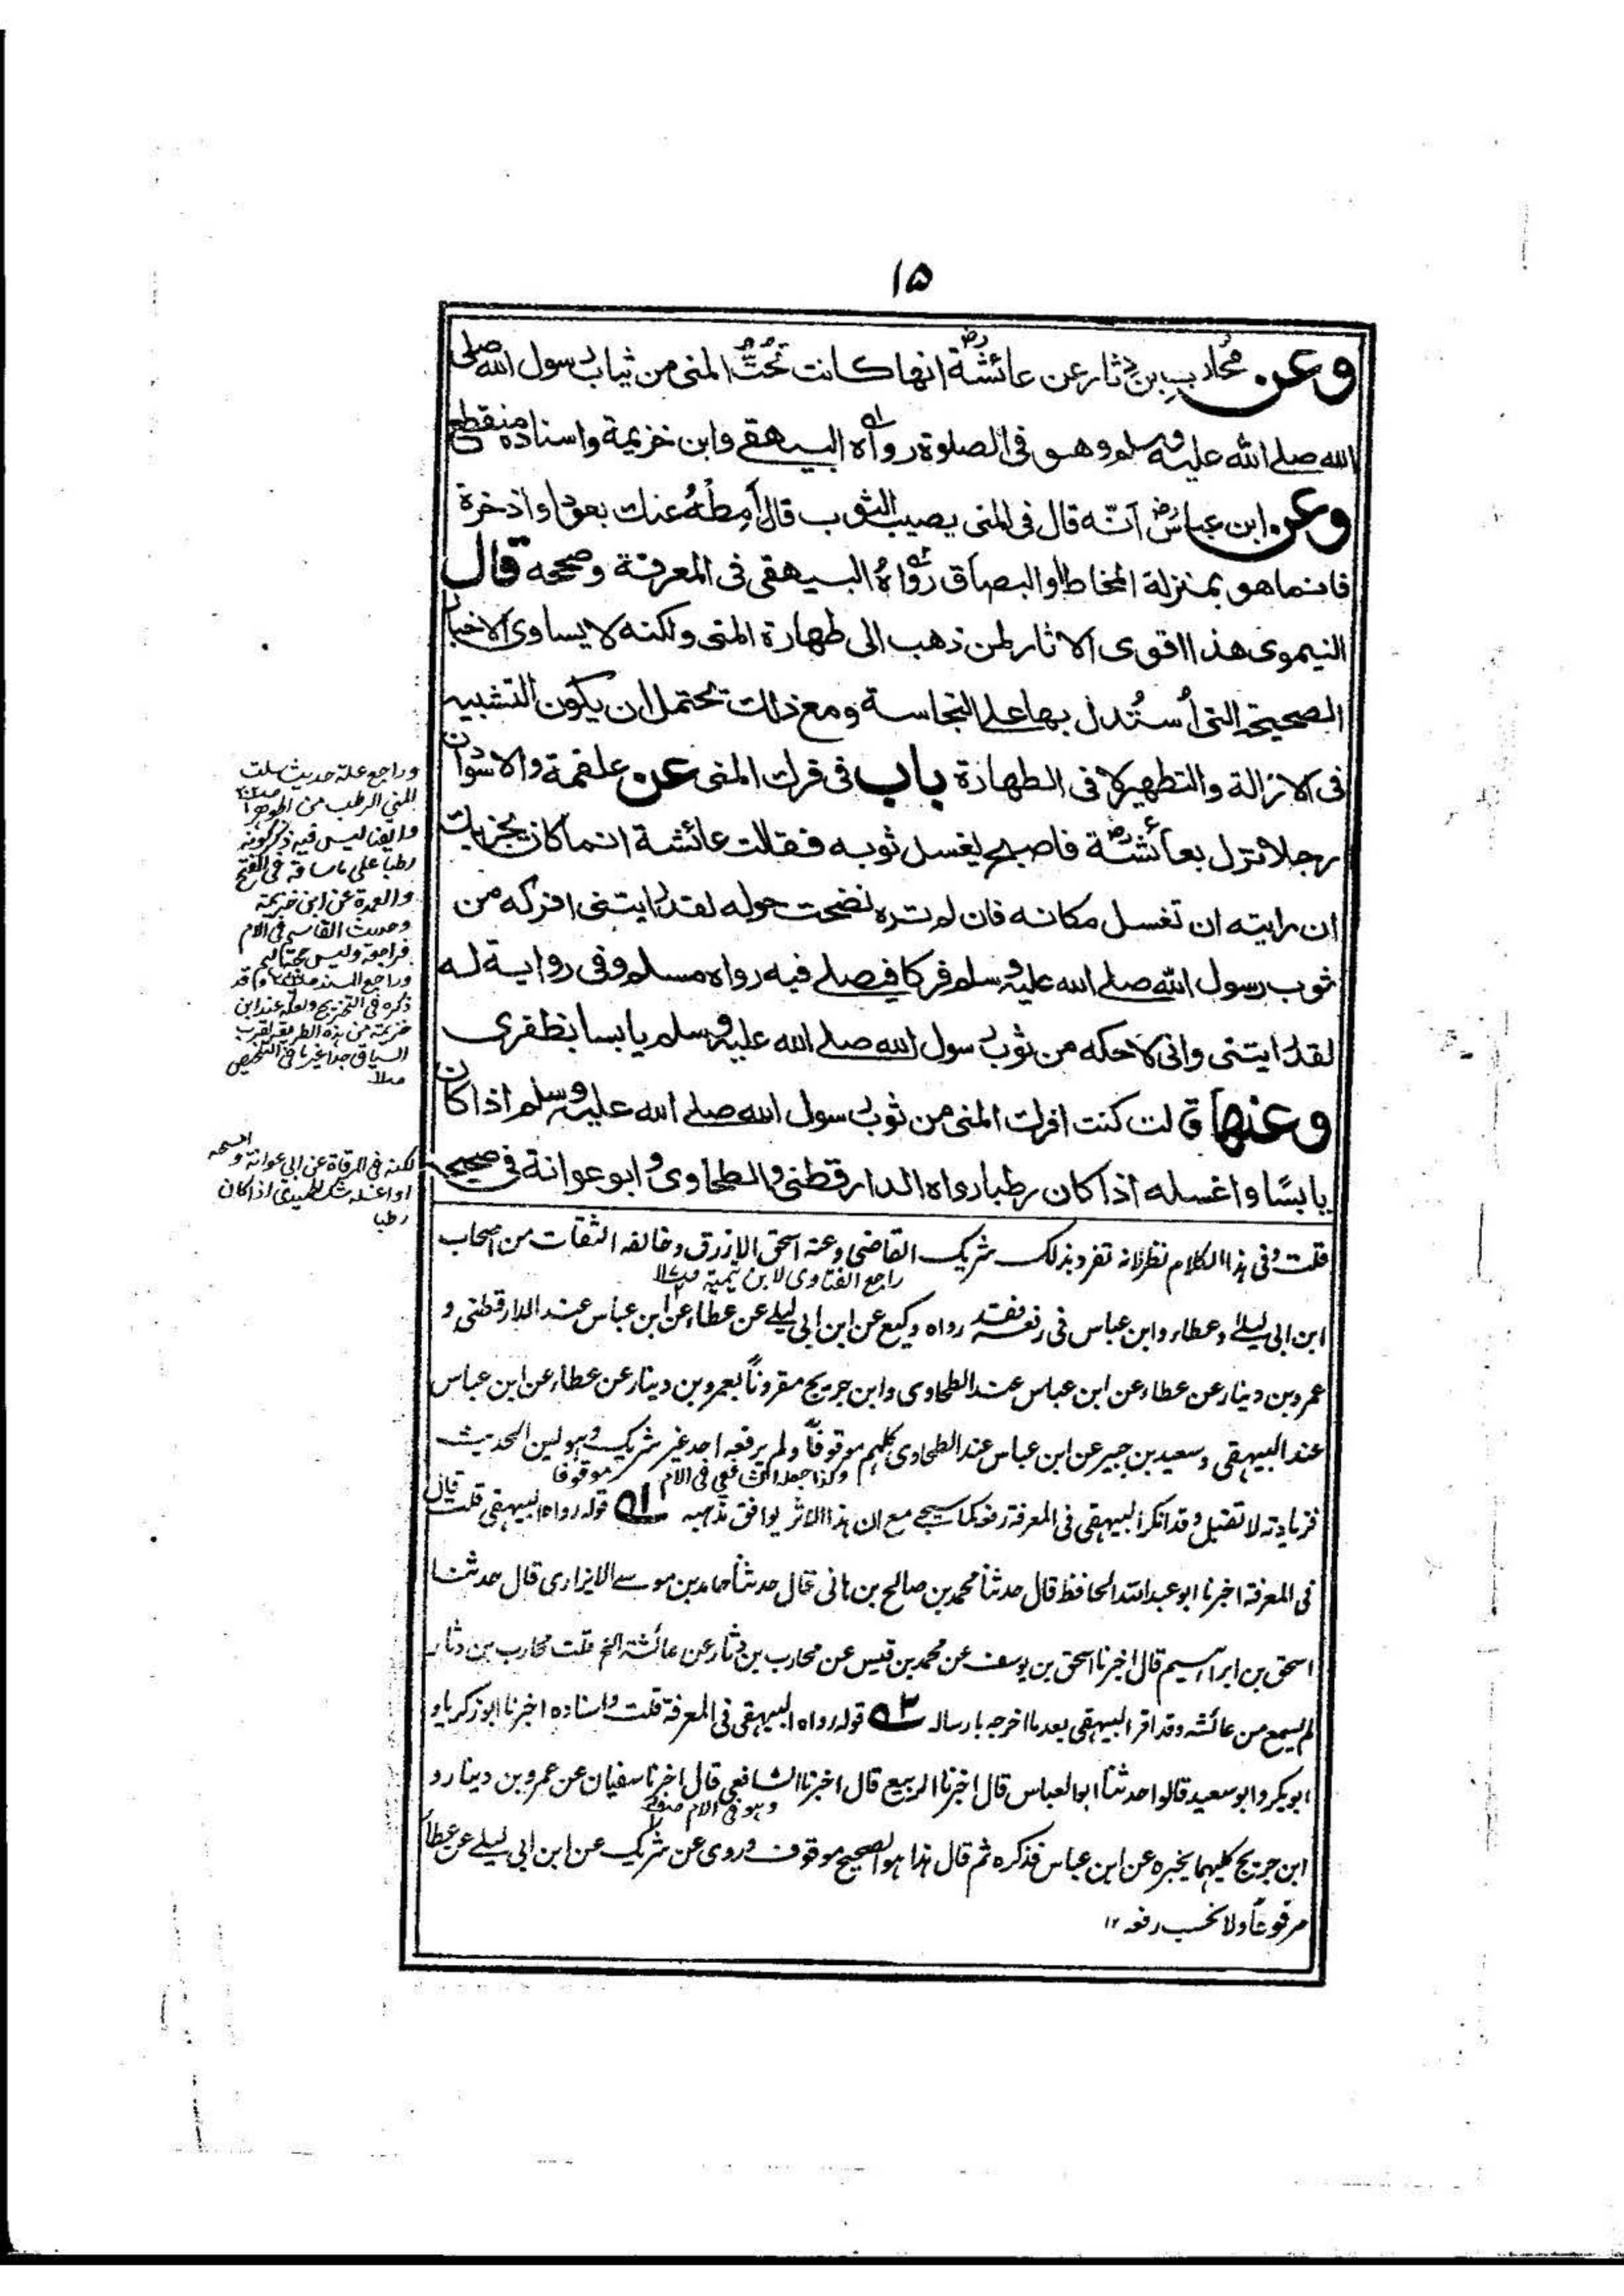 ۱۵
وعن محارب بن دثار عن عائشة رض انها كانت تحت المنى من ثياب رسول الله صلى
الله صلے الله عليه وسلم وهو فى الصلوة رواه البيهقے وابن خزيمة واسناده منقطع
وعن ابن عباس رض انّه قال فى المنى يصيب الثوب قال اَمِطْهُ عنك بعود او اذخرة
فانما هو بمنزلة المخاط او البصاق رواهُ البيهقى فى المعرفة وصححه قال
النيموى هذا اقوى الاثار لمن ذهب الى طهارة المنى ولكنه لا يساوى الاخبار
الصحيحة التى اُستُدل بها على النجاسة ومع ذلك تحتمل ان يكون التشبيه
فى الازالة والتطهير لا فى الطهارة باب فى فرك المنى عن علقمة والاسود ان
رجلا نزل بعائشة رض فاصبح يغسل ثوبه فقالت عائشة انما كان يجزيك
ان رايته ان تغسل مكانه فان لم تره نضحت حوله لقد رايتنى افركه من
ثوب رسول الله صلے الله عليه وسلم فركا فيصلے فيه رواه مسلم وفى رواية له
لقد رايتنى وانى لاحكه من ثوب رسول الله صلے الله عليه وسلم يابسا بظفرى
وعنها قالت كنت افرك المنى من ثوب رسول الله صلے الله عليه وسلم اذا كان
يابسًا واغسله اذا كان رطبا رواه الدارقطنى والطحاوى وابو عوانة فى صحيحه
وراجع علة حديث سلت
المنى الرطب من الجوهر
وايضا ليس فيه ذكر كونه
رطبا على ما ساقه فى الفتح
والعمدة عن ابن خزيمة
وحديث القاسم فى الام
فراجعه وليس حجة لهم
وراجع المسند وقد
ذكره فى التخريج ولعله عند ابن
خزيمة من هذه الطريق لقرب
السياق جدا غير ما فى التلخيص
لكنه فى المرقاة عن ابى عوانة
او اغسله شك الحميدى اذا كان
رطبا
قلت وفى هذا الكلام نظر لانه تفرد بذلك شريك القاضى وعنه اسحق الازرق وخالفه الثقات من اصحاب
راجع الفتاوى لابن تيمية
ابن ابى ليلے وعطاء وابن عباس فى رفعه فقد رواه وكيع عن ابن ابى ليلے عن عطاء عن ابن عباس عند الدارقطنى و
عمرو بن دينار عن عطاء عن ابن عباس عند الطحاوى وابن جريج مقروناً بعمرو بن دينار عن عطاء عن ابن عباس
عند البيهقى وسعيد بن جبير عن ابن عباس عند الطحاوى كلهم موقوفاً ولم يرفعه احد غير شريك وهو لين الحديث
وكذا جعله الشافعى فى الام موقوفا
فزيادته لا تقبل وقد انكر البيهقى فى المعرفة رفعه كما سيجے مع ان هذا الاثر يوافق مذهبه ۱ه قوله رواه البيهقى قلت قال
فى المعرفة اخبرنا ابو عبدالله الحافظ قال حدثنا محمد بن صالح بن هانى قال حدثنا حامد بن موسے الابزارى قال حدثنا
اسحق بن ابراهيم قال اخبرنا اسحق بن يوسف عن محمد بن قيس عن محارب بن دثار عن عائشة الخ قلت محارب بن دثار
لم يسمع من عائشه وقد اقر البيهقى بعد ما اخرجه بارساله ۲ه قوله رواه البيهقى فى المعرفة قلت واسناده اخبرنا ابو زكريا و
ابو بكر وابو سعيد قالوا حدثنا ابو العباس قال اخبرنا الربيع قال اخبرنا الشافعى قال اخبرنا سفيان عن عمرو بن دينار و
وهو فى الام
ابن جريج كليهما يخبره عن ابن عباس فذكره ثم قال هذا هو الصحيح موقوف وروى عن شريك عن ابن ابى ليلے عن عطاء
مرفوعاً ولا نحسب رفعه ۱۲